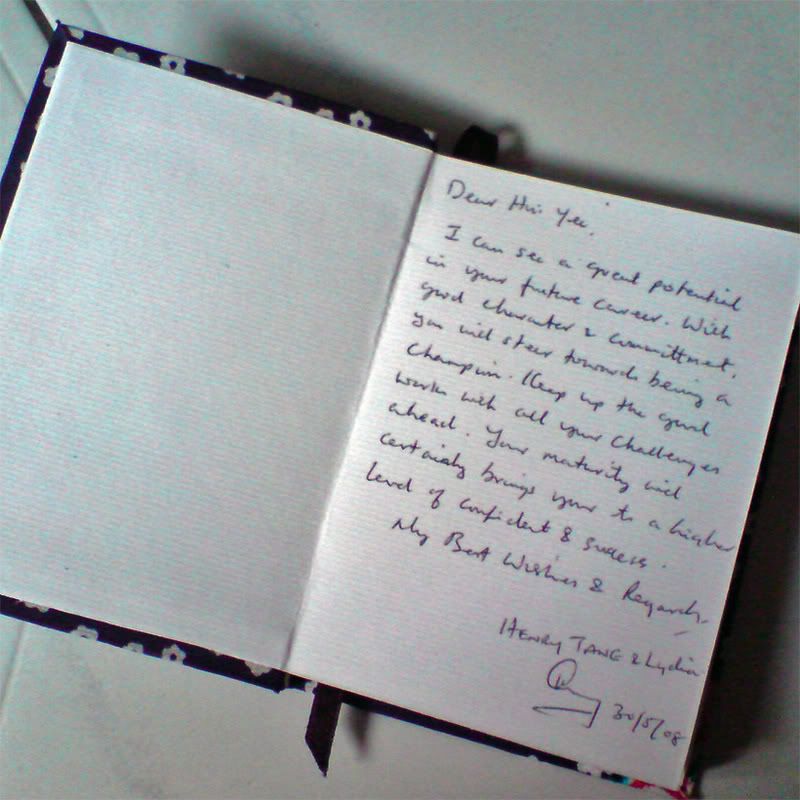 Dear Hui Yee,
I can see a great potential
in your future career. With
good character & committment,
you will steer towards being a
Champion. Keep up the good
work with all your challenges
ahead. Your maturity will
certainly brings your to a higher
level of confident & success.
My Best Wishes & Regards,
HENRY TANG & Lydia
30/5/08